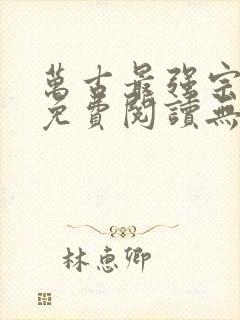 萬古最強宗
免費閱讀無
林惠卿